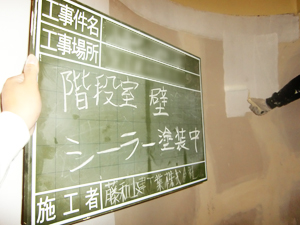 工事件名
工事場所
階段室 壁
シーラー塗装中
施工者 藤和建工業株式会社